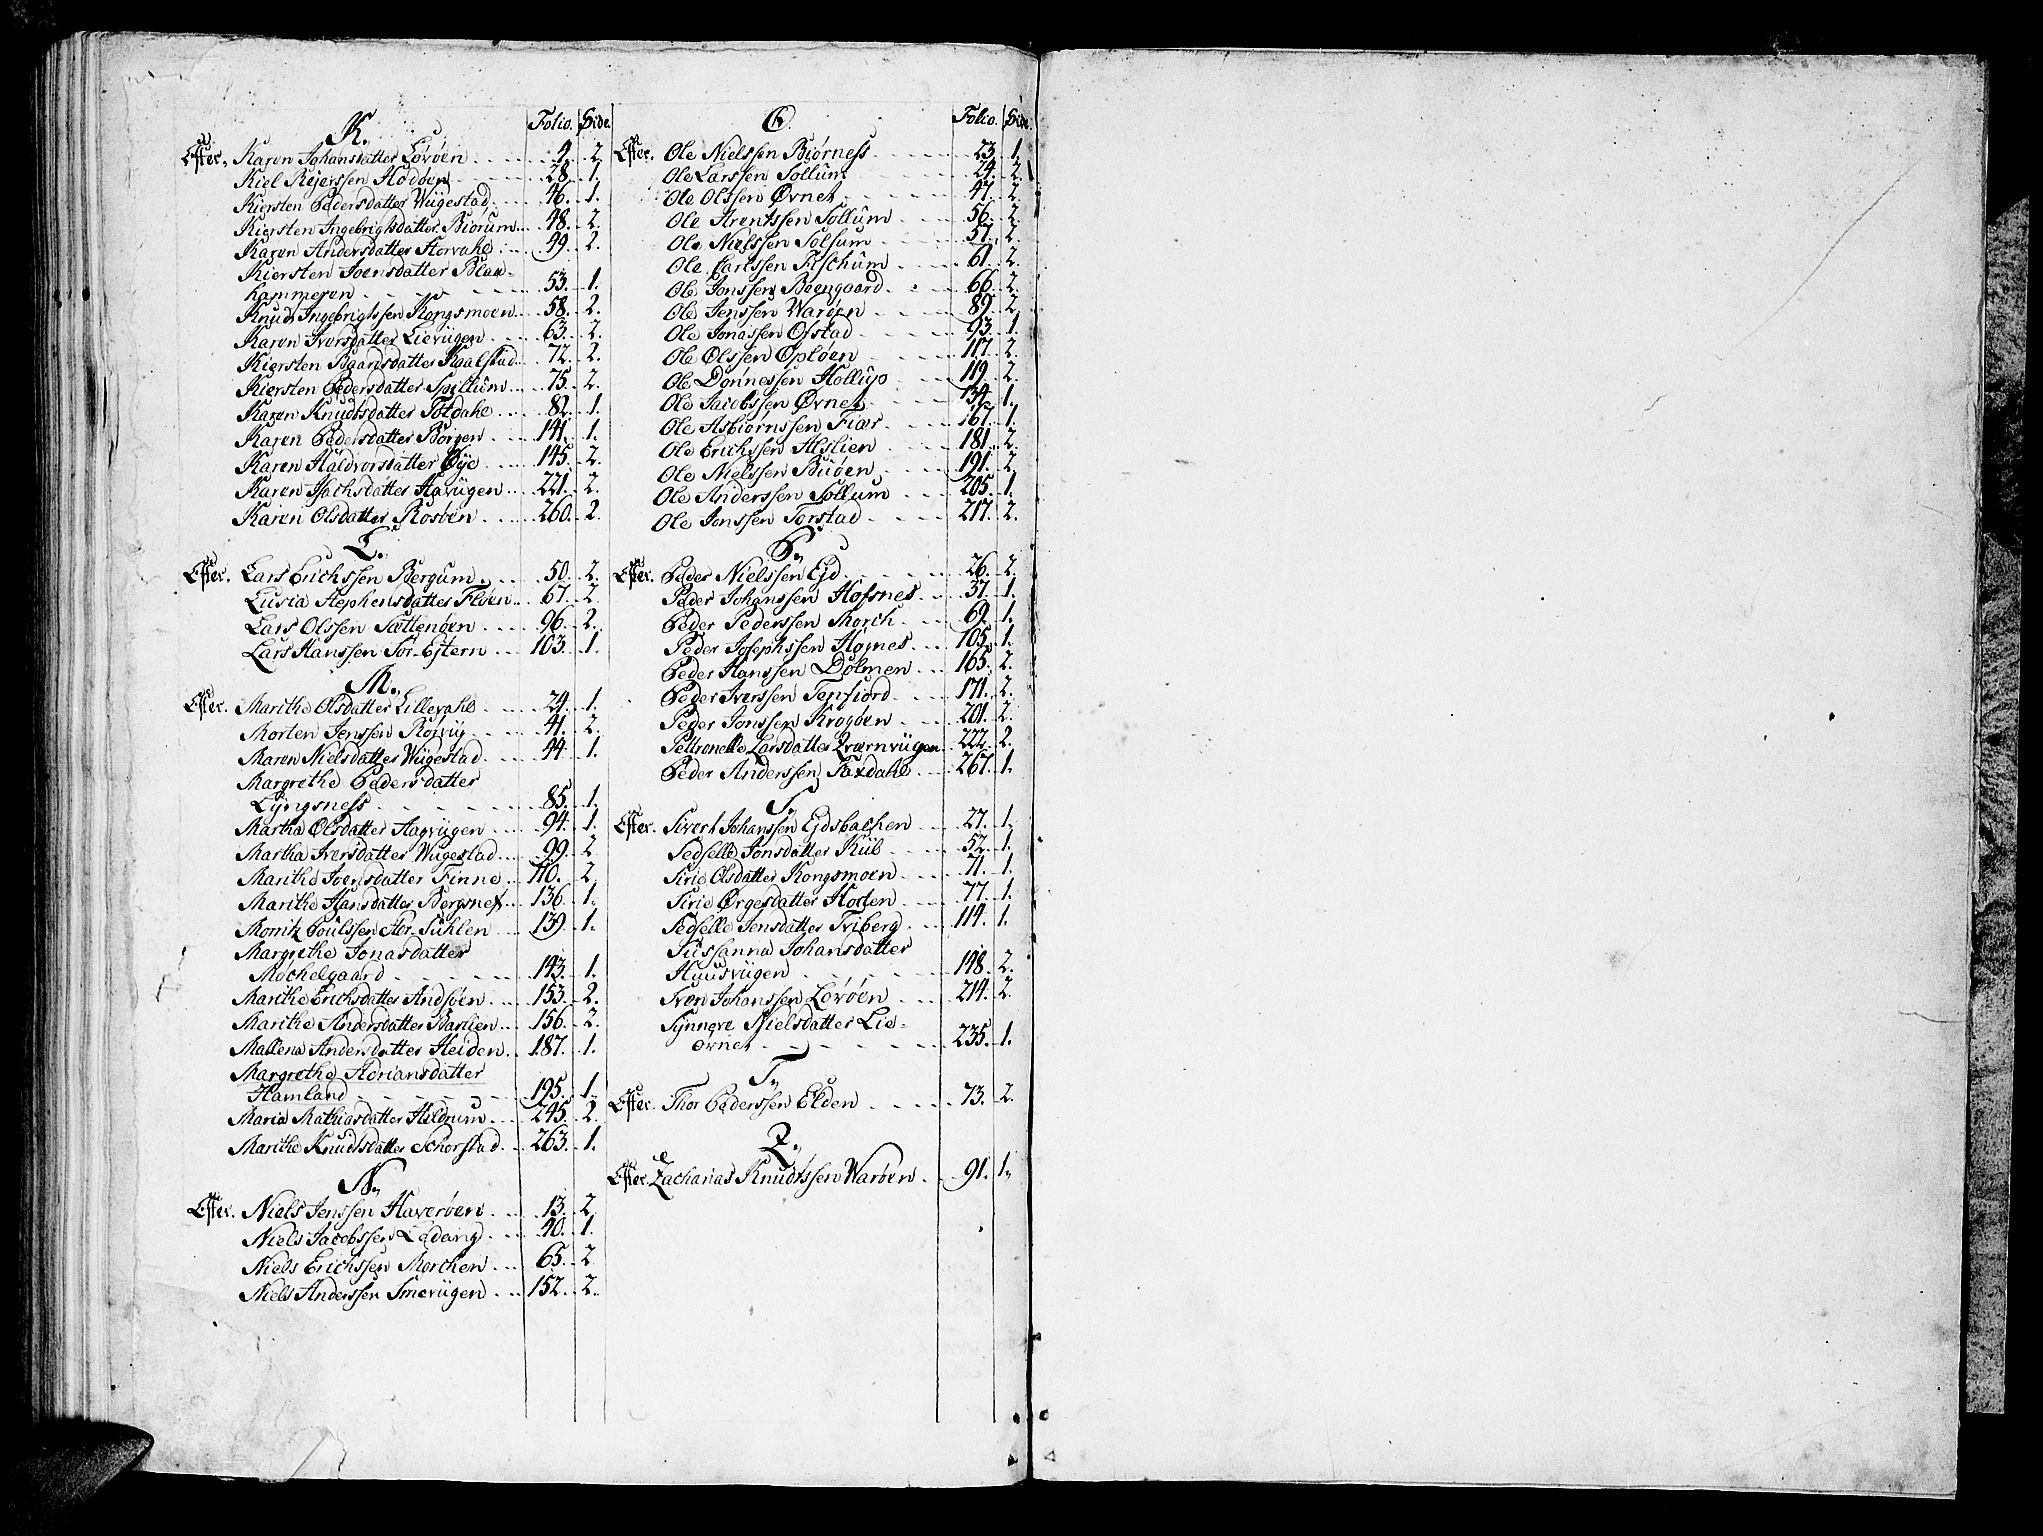 K. Folio. Side.
Efter. Karen Johansdatter Lövöen 4. 2.
Kiel Rejerssen Hodöen 28. 1.
Kiersten Pedersdatter Wiigestad 46. 1.
Kiersten Ingebrigtsdatter Biörum 48. 2.
Karen Andersdatter Storvahe 49. 2.
Kiersten Joensdatter Blan-
hammeren 53. 1.
Knud Ingebrigtssen Kongsmoen 58. 2.
Karen Iversdatter Lieviigen 63. 2.
Kiersten Baarsdatter Kaalstad 72. 2.
Kiersten Pedersdatter Spillum 75. 2.
Karen Knudtsdatter Totdahe 82. 1.
Karen Pedersdatter Borgen 141. 1.
Karen Haldvorsdatter Öÿe 145. 2.
Karen Isachsdatter Haviigen 221. 2.
Karen Olsdatter Rosöen 260. 2.
L.
Efter. Lars Erichssen Bergum 50. 2.
Lusia Stephensdatter Floen 67. 2.
Lars Olssen Sættenöen 96. 2.
Lars Hanssen Sör-Gjtern 103. 1.
M.
Efter. Marithe Olsdatter Lillevahe 24. 1.
Morten Jenssen Rörvig 41. 2.
Maren Nielsdatter Wiigestad 44. 1.
Margrethe Pedersdatter
Lÿngsness 85. 1.
Martha Olsdatter Aagviigen 94. 1.
Martha Iversdatter Wiigestad 99. 2.
Marithe Joensdatter Finne 110. 2.
Marithe Hansdatter Bergsnes 136. 1.
Moritz Poulssen Hor-Suhlen 139. 1.
Margrethe Jonasdatter
Mochelgaard 143. 1.
Marithe Erichsdatter Andsöen 153. 2.
Marithe Andersdatter Barlien 156. 2.
Mallena Andersdatter Heiden 187. 1.
Margrethe Adriansdatter
Hamland 195. 1.
Maria Mathiasdatter Hildrum 245. 2.
Marithe Knudtsdatter Schorstad 263. 1.
N.
Efter. Niels Jenssen Haveröen 13. 2.
Niels Jacobssen Ledang 40. 1.
Niels Erichssen Morchen 65. 2.
Niels Anderssen Smeviigen 152. 2.
O. Folio. Side.
Efter. Ole Nielssen Biörness 23. 1.
Ole Larssen Sollum 24. 2.
Ole Olssen Øvnet 47. 2.
Ole Arentssen Sollum 56. 2.
Ole Nielssen Solsum 57. 2.
Ole Carlssen Fischum 61. 2.
Ole Jonssen Boengaard 66. 2.
Ole Jenssen Waröen 89. 2.
Ole Jonassen Ofstad 93. 1.
Ole Olssen Oplöen 117. 2.
Ole Dönnessen Hollup 119. 2.
Ole Jacobssen Øvnet 134. 1.
Ole Asbiörnssen Fiær 167. 1.
Ole Erichssen Alslien 181. 2.
Ole Nielssen Buöen 191. 2.
Ole Anderssen Sollum 205. 1.
Ole Jonssen Torstad 217. 2.
P.
Efter. Peder Nielssen Ejd 26. 2.
Peder Johanssen Hofsnes 37. 1.
Peder Pederssen Morch 69. 1.
Peder Josephssen Högnes 105. 1.
Peder Hanssen Dolmen 165. 2.
Peder Iverssen Tenfiord 171. 2.
Peder Jonssen Krogöen 201. 2.
Petronelle Larsdatter Qværnviigen 222. 2.
Peder Anderssen Faxdahe 267. 1.
S.
Efter. Sivert Johanssen Ejdsbachen 27. 1.
Sedselle Jonsdatter Kiib 52. 1.
Sirie Olsdatter Kongsmoen 71. 1.
Sirie Örgesdatter Horten 77. 1.
Sedselle Jensdatter Friberg 114. 1.
Sussanna Johansdatter
Huusviigen 148. 2.
Sven Johanssen Lövöen 214. 2.
Synneve Nielsdatter Lie-
övnet 235. 1.
T.
Efter. Thor Pederssen Elden 73. 2.
Z.
Efter Zacharias Knudtssen Waröen 91. 1.